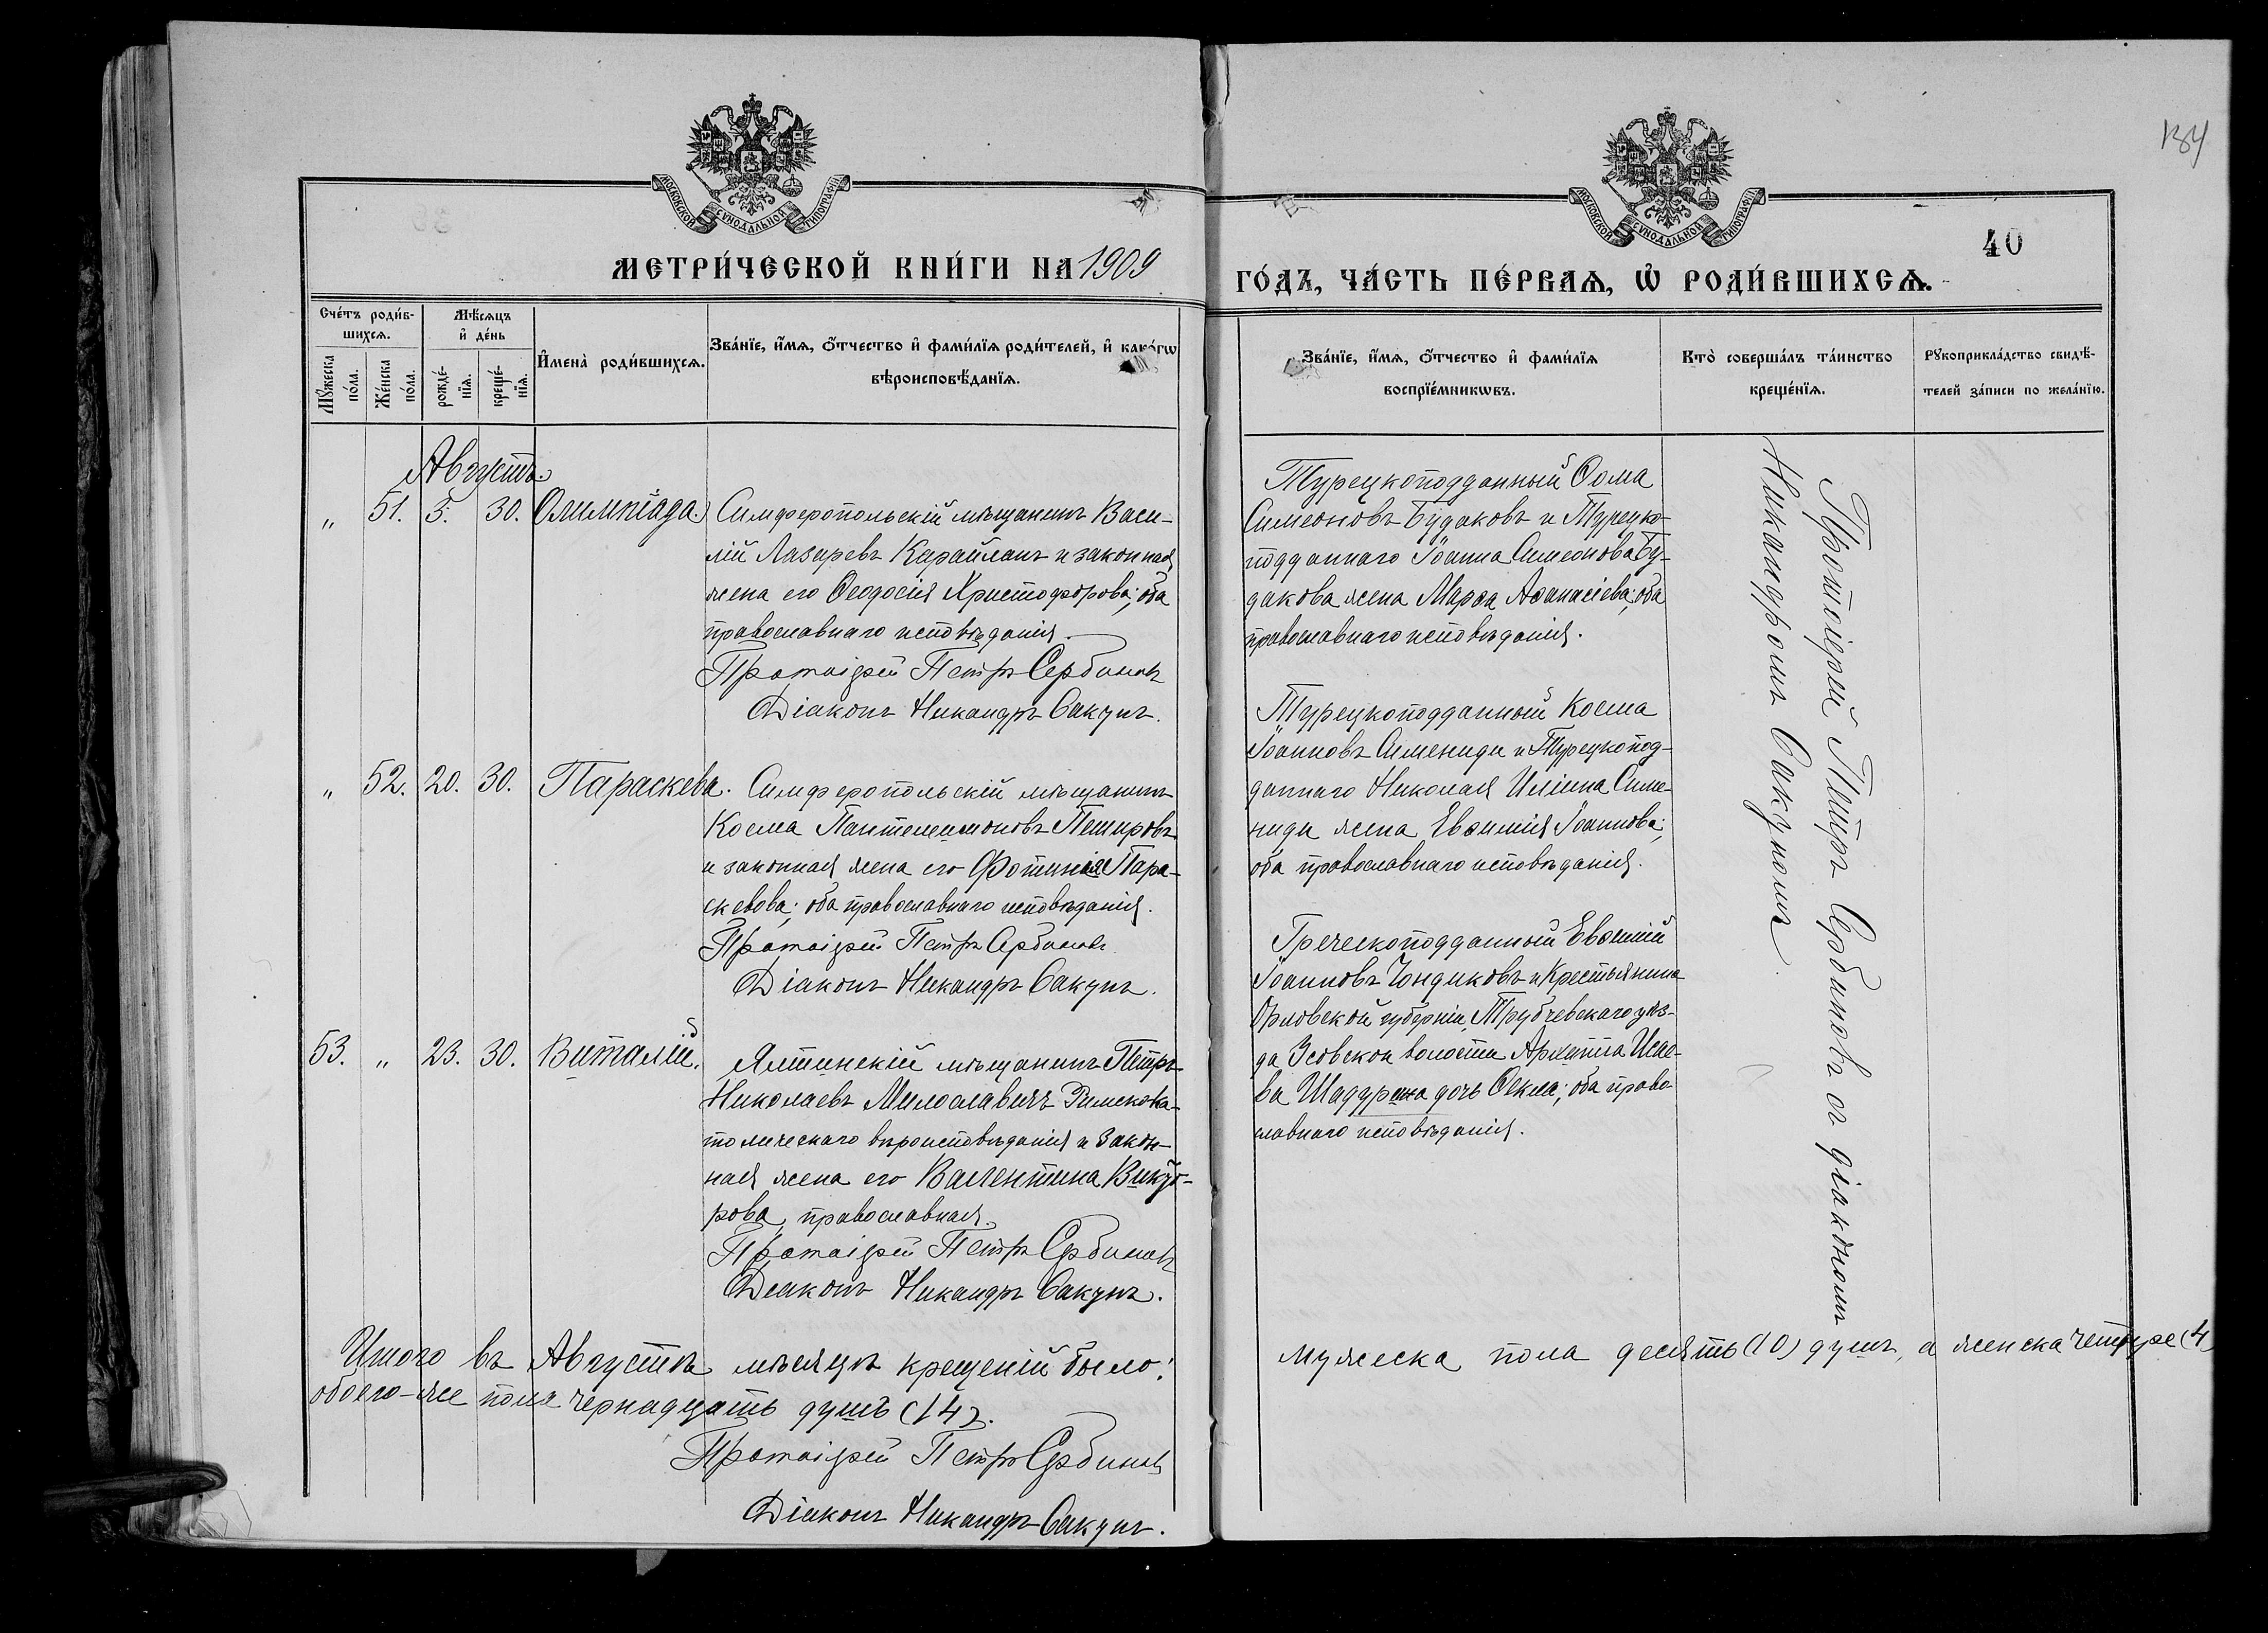 134
МОСКОВСКОЙ СѴНОДАЛЬНОЙ ТИПОГРАФІИ
МОСКОВСКОЙ СѴНОДАЛЬНОЙ ТИПОГРАФІИ
40
МЕТРИ́ЧЕСКОЙ КНИ́ГИ НА 1909
ГО́ДЪ, ЧА́СТЬ ПЕ́РВАѦ, Ѡ҆ РОДИ́ВШИХСѦ.
Сче́тъ роди́в-
шихсѧ.
Мꙋ́жеска
по́ла.
Же́нска
по́ла.
Мѣ́сѧцъ
и҆ де́нь
рожде́-
нїѧ.
креще́-
нїѧ.
И҆мена̀ роди́вшихсѧ.
Зва́нїе, и҆́мѧ, ѻ҆́тчество и҆ фами́лїѧ роди́телей, и҆ како́гѡ
вѣроисповѣ́данїѧ.
Зва́нїе, и҆́мѧ, ѻ҆́тчество и҆ фами́лїѧ
воспрїе́мникѡвъ.
Кто̀ соверша́лъ та́инство
креще́нїѧ.
Рꙋкоприкла́дство свидѣ́-
телей за́писи по жела́нїю.
Августъ.
„ 51. 5. 30. Олимпіада. Симферопольскій мѣщанинъ Васи-
лій Лазаревъ Карайланъ и законная
жена его Ѳеодосія Христофорова; оба
православнаго исповѣданія.
Протоіерей Петръ Сербиновъ
Діаконъ Никандръ Сакунъ.
Турецкоподданный Ѳома
Симеоновъ Будаковъ и Турецко-
подданнаго Іоанна Симеонова Бу-
дакова жена Марѳа Аѳанасіева; оба
православнаго исповѣданія.
Протоіерей Петръ Сербиновъ съ діакономъ
Никандромъ Сакуномъ
„ 52. 20. 30. Параскева. Симферопольскій мѣщанинъ
Косма Пантелеимоновъ Пешировъ
и законная жена его Фотинія Пара-
скевова; оба православнаго исповѣданія.
Протоіерей Петръ Сербиновъ
Діаконъ Никандръ Сакунъ.
Турецкоподданный Косма
Іоанновъ Симениди и Турецкопод-
даннаго Николая Иліина Симе-
ниди жена Евѳимія Іоаннова;
оба православнаго исповѣданія.
53. „ 23. 30. Виталій. Ялтинскій мѣщанинъ Петръ
Николаевъ Милославичъ Римскока-
толическаго вѣроисповѣданія и закон-
ная жена его Валентина Викто-
рова, православная.
Протоіерей Петръ Сербиновъ
Діаконъ Никандръ Сакунъ.
Греческоподданный Евѳимій
Іоанновъ Чондиковъ и Крестьянина
Орловской губерніи, Трубчевскаго уѣз-
да Усовской волости Архиппа Исае-
ва Шадурина дочь Ѳекла; оба право-
славнаго исповѣданія.
Итого въ Августѣ мѣсяцѣ крещеній было:
мужеска пола десять (10) душъ, а женска четыре (4)
обоего-же пола чернадцать душъ (14).
Протоіерей Петръ Сербиновъ
Діаконъ Никандръ Сакунъ.